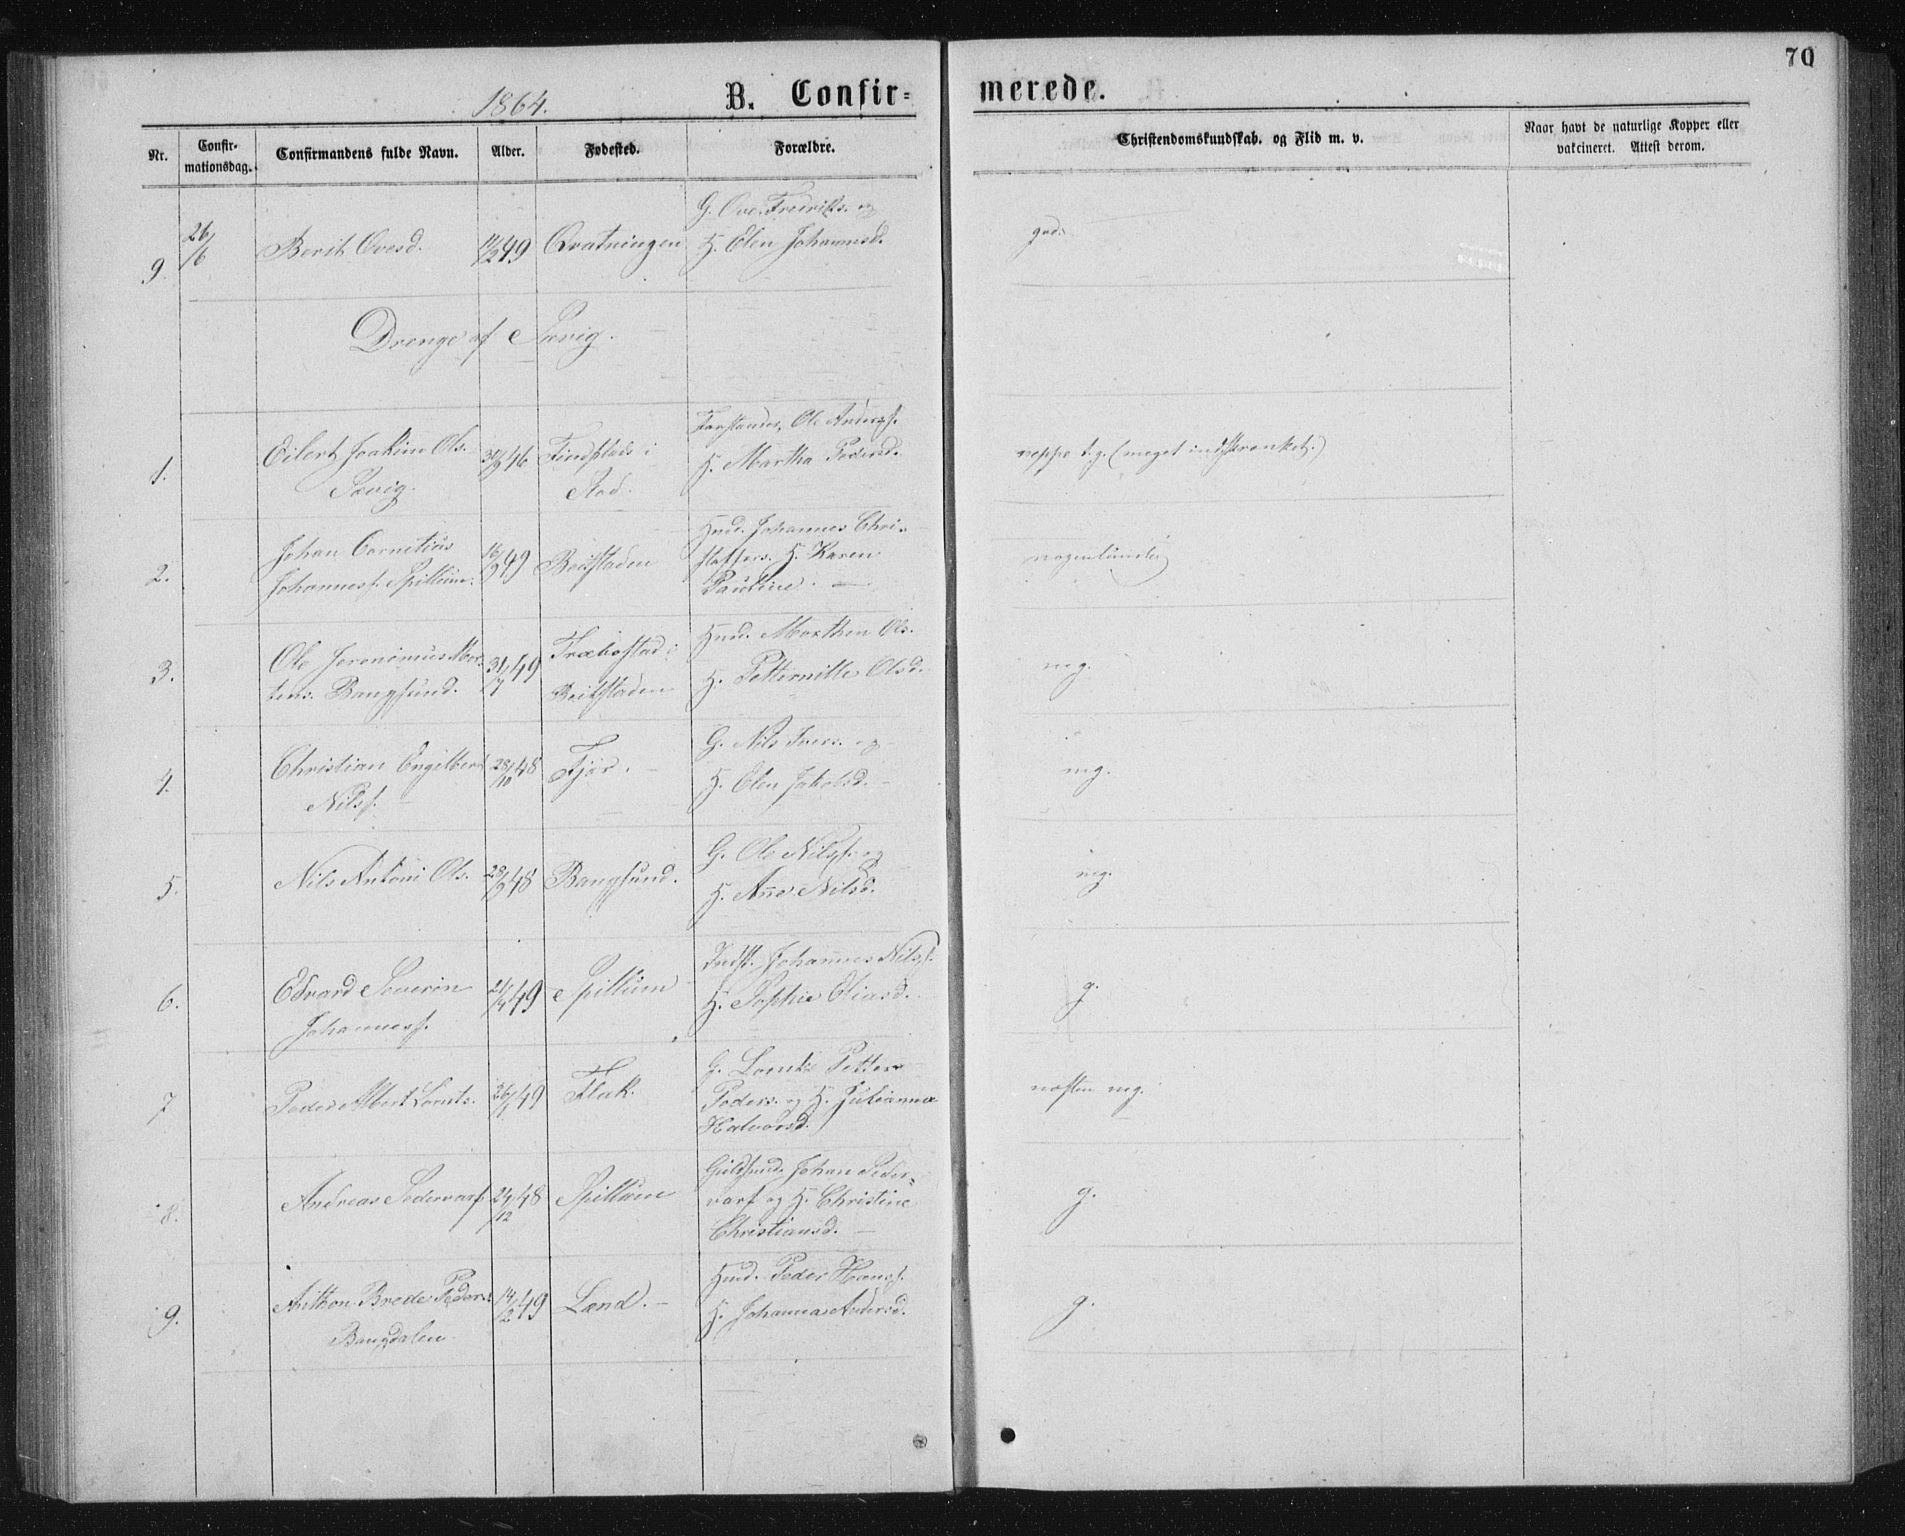 70
1864.
B. Confir=
merede.
Nr.
Confir-
mationsdag.
Confirmandens fulde Navn.
Alder.
Fødested.
Forældre.
Christendomskundskab. og Flid m. v.
Naar havt de naturlige Kopper eller
vakcineret. Attest derom.
9. 26/6 Berit Ovesd. /2 49 Qvatningen
G. Ove Fredriks. og
H. Elen Johannesd.
god.
Drenge af Sævig.
1. Eilert Joakim Ols.
Sævig.
46
i
Stod.
Ole Anders.
H. Martha Pedersd.
neppe t. g. (meget indskrænket.)
2. Johan Cornelius
Johanness. Spillum.
16/9 49
Beitstaden
Hmd. Johannes Chri-
stoffers. H. Karen
Pauline. —
nogenlunde
3. Ole Jeronimus Mor-
tens. Bangsund.
31/7 49
i
Beitstaden
Hmd. Morthen Ols.
H. Petternille Olsd.
mg.
4. Christian Engelbert
Nilss.
28/10 48
Fjær. —
G. Nils Ivers. og
H. Elen Jakobsd. —
mg.
5. Nils Antoni Ols.
28/9 48
Bangsund.
G. Ole Nilss. og
H. Ane Nilsd.
mg.
6. Edvard Severin
Johanness.
21/4 49
Spillum
Indst. Johannes Nilss.
H. Sophie Eliasd.
g.
7 Peder Albert Lornts.
26/1 49
Flak.
G. Lornts Petter
Peders. og H. Julianna
Halvorsd.
næsten mg.
8. Andreas Pedervarss.
24/12 48
Spillum
Johan Peder-
vars. og H. Christine
Christiansd. —
g.
9. Anthon Brede Peders.
Bangdalen.
14/2 49
Lænd. —
Hmd. Peder Hanss.
H. Johanna Andersd.
g.